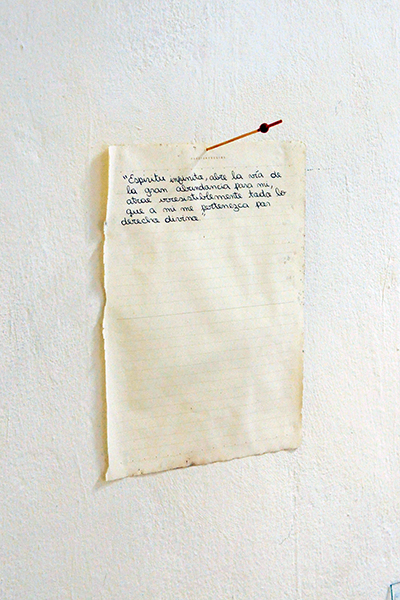 "Espiritu infinito, abre la vía de
la gran abundancia para mi,
atrae irresistiblemente todo lo
que a mi me pertenezca por
derecho divino"